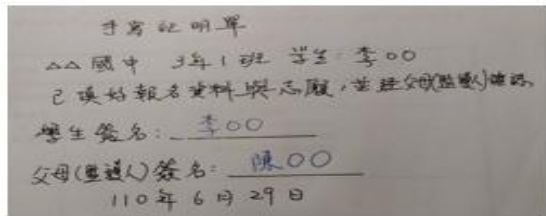 手寫証明單
△△國中 3年1班 學生: 李○○
已填好報名資料與志願,並經父母(監護人)確認。
學生簽名: 李○○
父母(監護人)簽名: 陳○○
110年6月29日